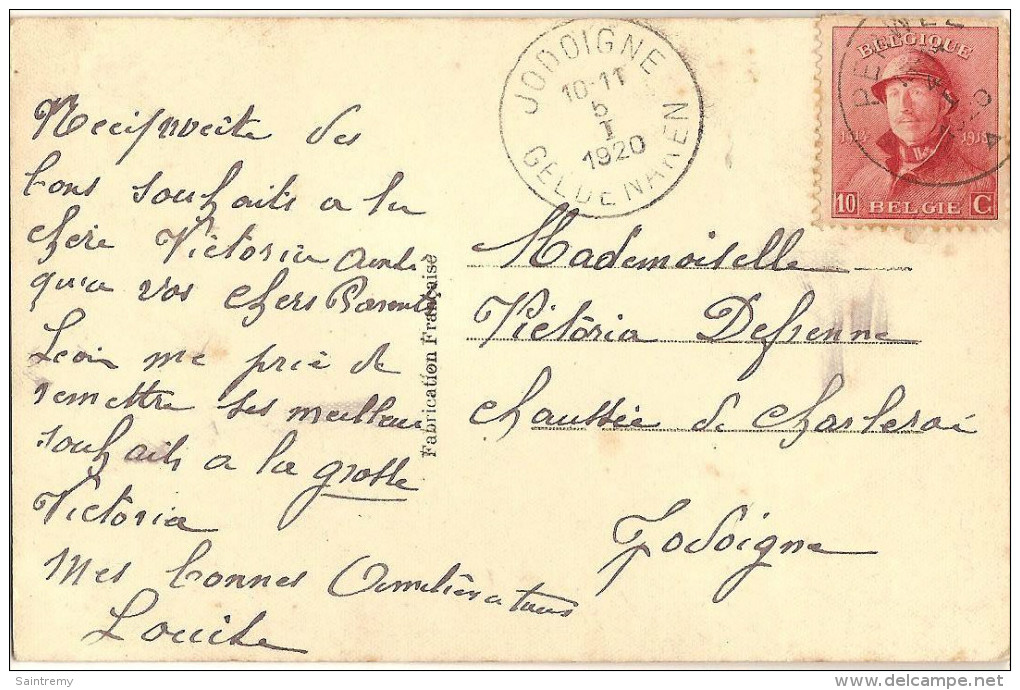 Réciprocité des
bons souhaits a la
chere Victoria ainsi
qu'a vos chers Parents
Léon me prie de
remettre ses meilleurs
souhaits a la grosse
Victoria
Mes bonnes amitiés a tous
Louise
Fabrication Française
JODOIGNE
10-11
5
I
1920
GELDENAKEN
BELGIQUE
1914 1918
10 BELGIË C
Mademoiselle
Victoria Defrenne
chaussée de Charleroi
Jodoigne
Saintremy
delcampe.net